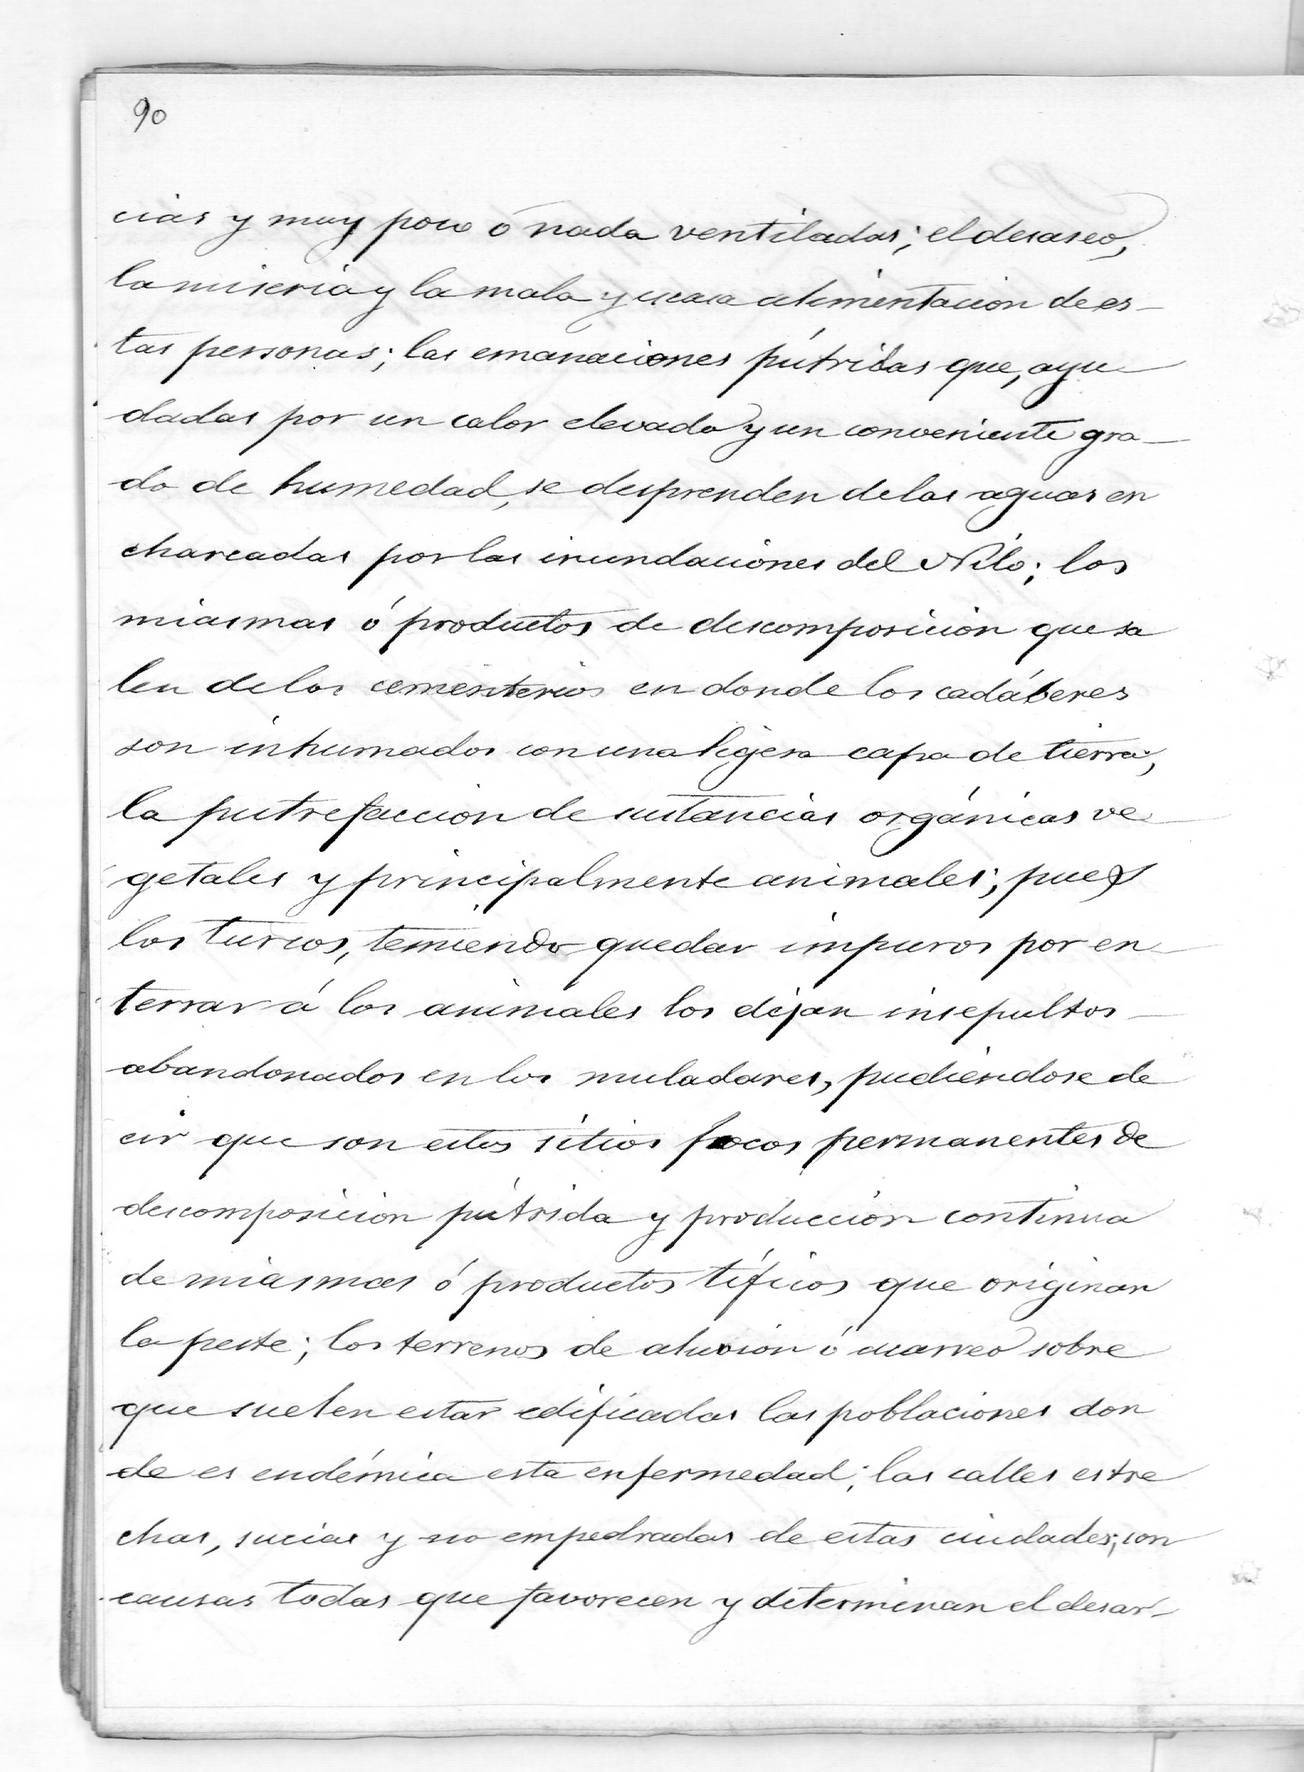 90
cias y muy poco ó nada ventiladas; el desaseo,
la miseria y la mala y escasa alimentacion de es-
tas personas; las emanaciones pútridas que, ayu-
dadas por un calor elevado y un conveniente gra-
do de humedad, se desprenden de las aguas en
charcadas por las inundaciones del Nilo; los
miasmas ó productos de descomposicion que sa
len de los cementerios en donde los cadáberes
son inhumados con una ligera capa de tierra;
la putrefaccion de sustancias orgánicas ve-
getales y principalmente animales; pues
los turcos, temiendo quedar impuros por en-
terrar á los animales los dejan insepultos -
abandonados en los muladares, pudiendose de
cir que son estos sitios focos permanentes de
descomposicion pútrida y produccion continua
de miasmas ó productos tíficos que originan
la peste; los terrenos de aluvion ó acarreo sobre
que suelen estar edificadas las poblaciones don
de es endémica esta enfermedad; las calles estre
chas, sucias y no empedradas de estas ciudades; son
causas todas que favorecen y determinan el desar-